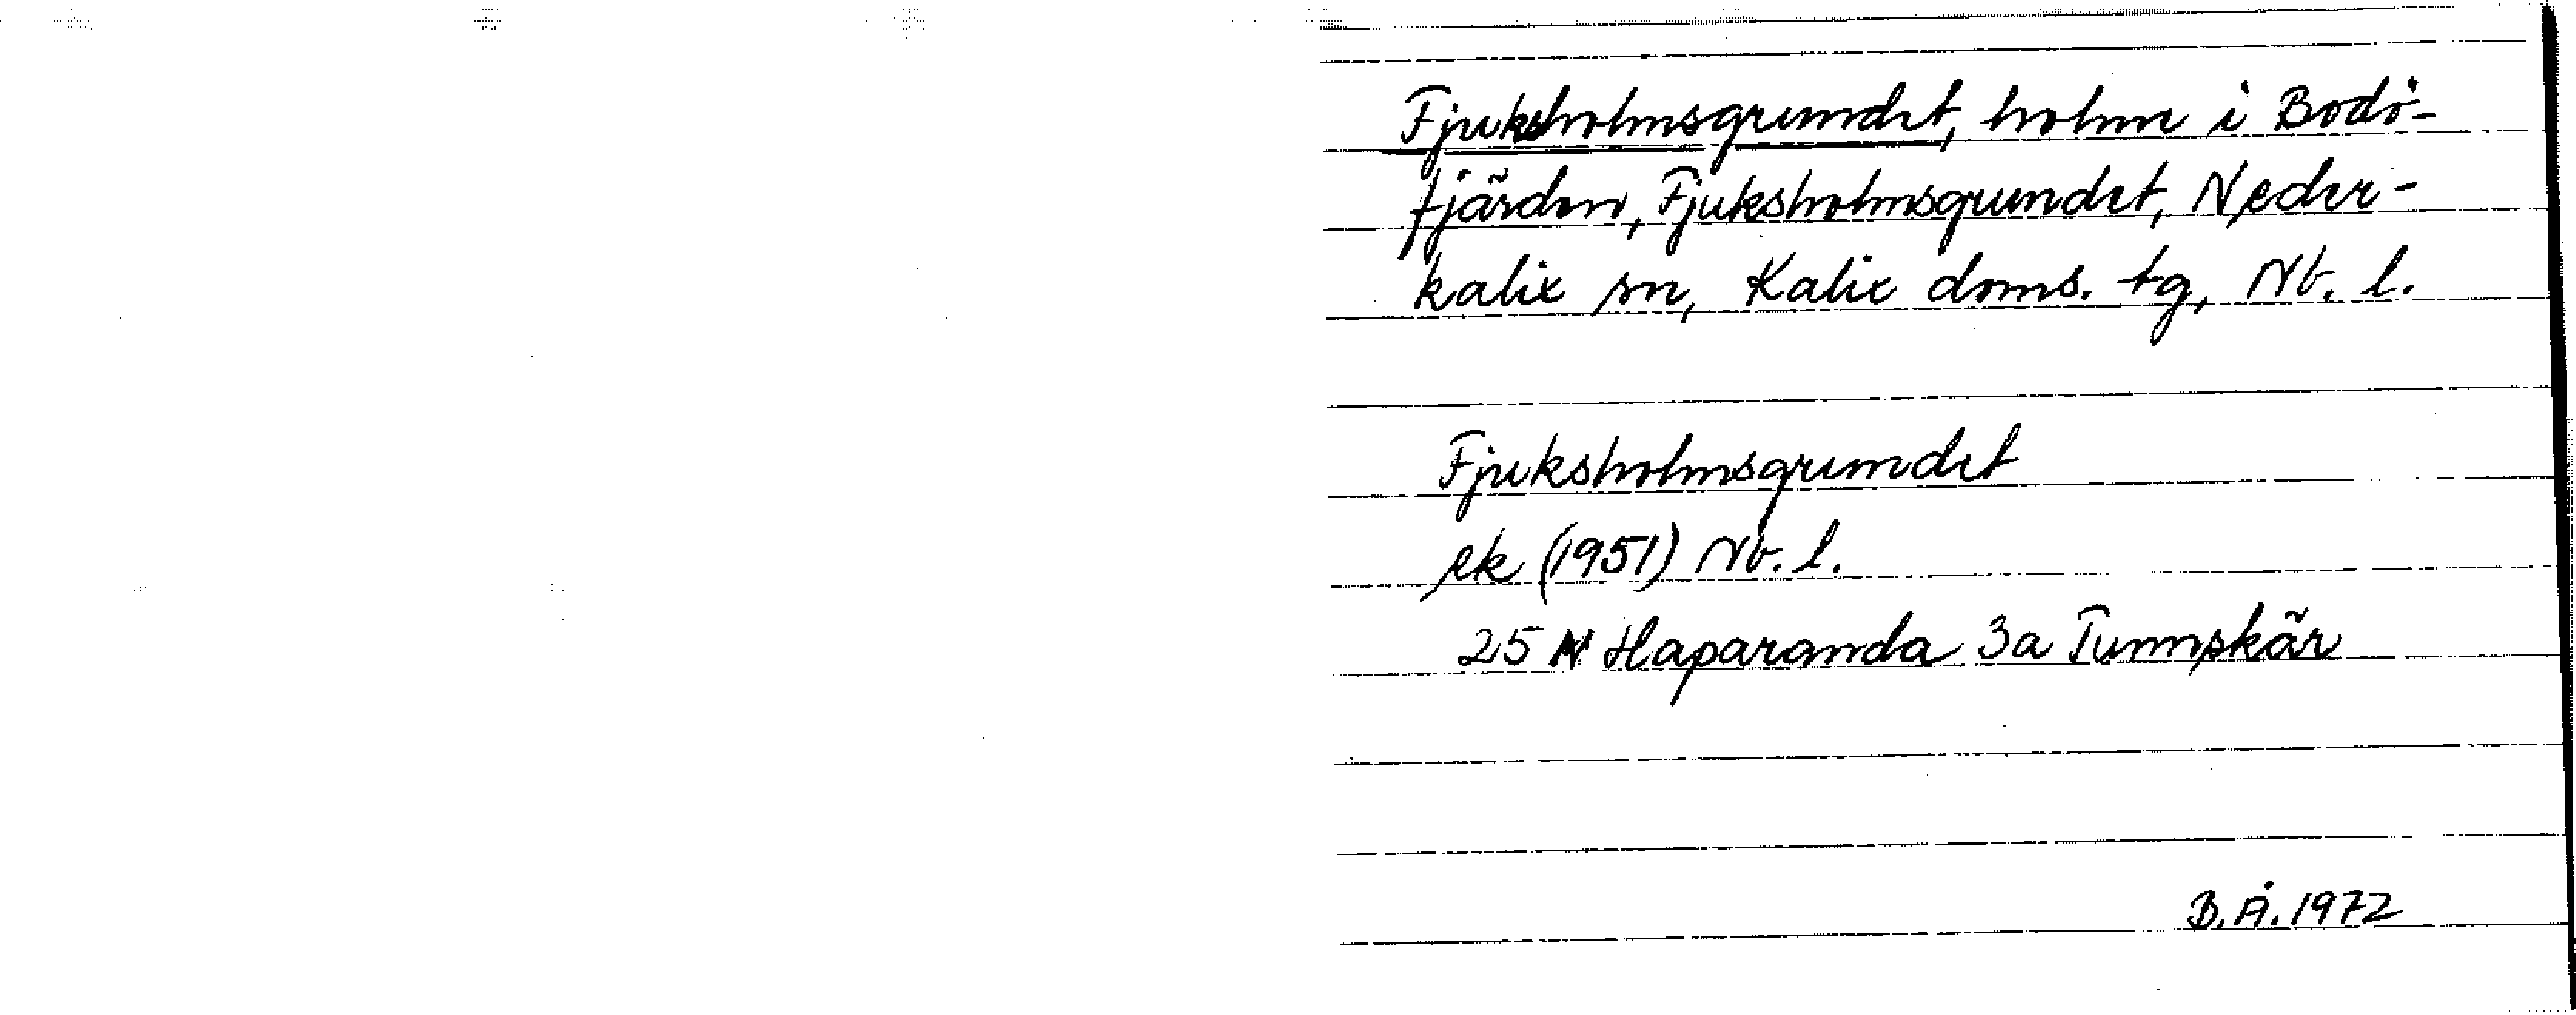 Fjuksholmsgrundet, holme i Bodö-
fjärden, Fjuksholmsgrundet, Neder-
kalix sn, Kalix doms. tg, Nb. l.
Fjuksholmsgrundet
ek (1951) Nb. l.
25 N Haparanda 3a Tunnskär
B.Å. 1972